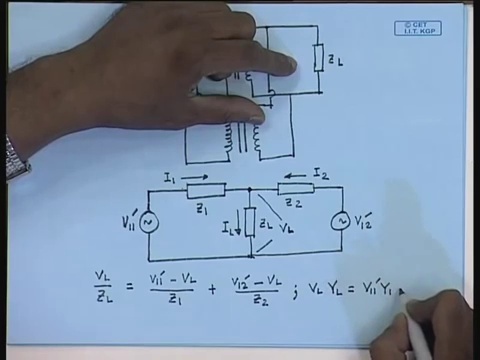 © CET
I.I.T. KGP
Z_L
I₁ → ← I₂
Z₁ Z₂
V₁₁′ I_L ↓ Z_L V_L V₁₂′
V_L/Z_L = (V₁₁′ − V_L)/Z₁ + (V₁₂′ − V_L)/Z₂ ; V_L Y_L = V₁₁′Y₁